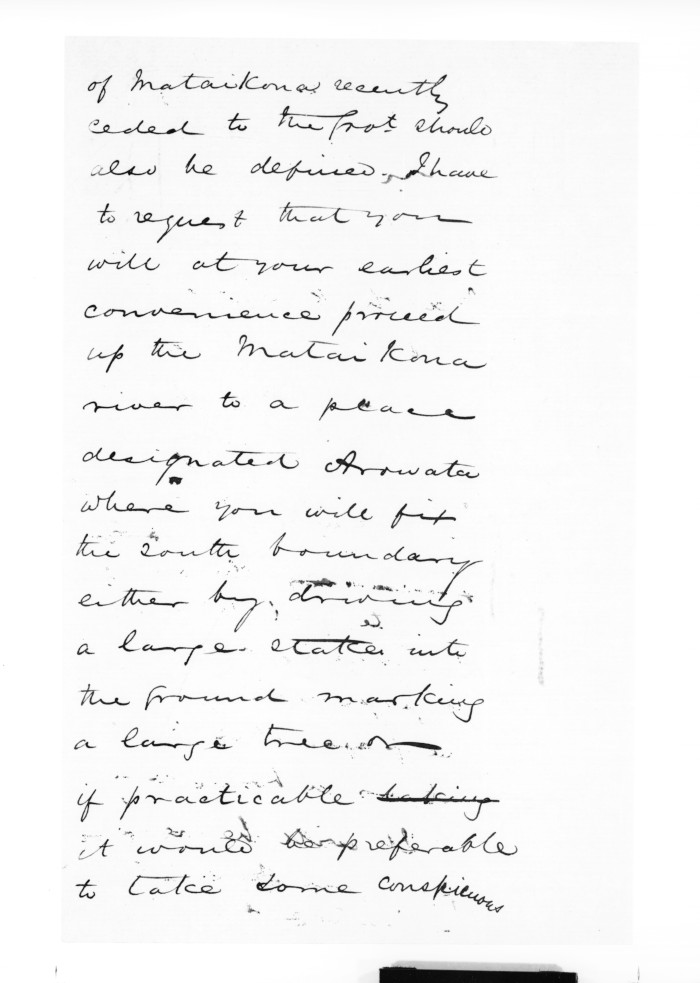 of Mataikona recently
ceded to the Govt should
also be defined. I have
to request that you
will at your earliest
convenience proceed
up the Matai Kona
river to a place
designated Arowata
where you will fix
the south boundary
either by driving
a large stake into
the ground marking
a large tree or
if practicable taking
it would be preferable
to take some conspicuous